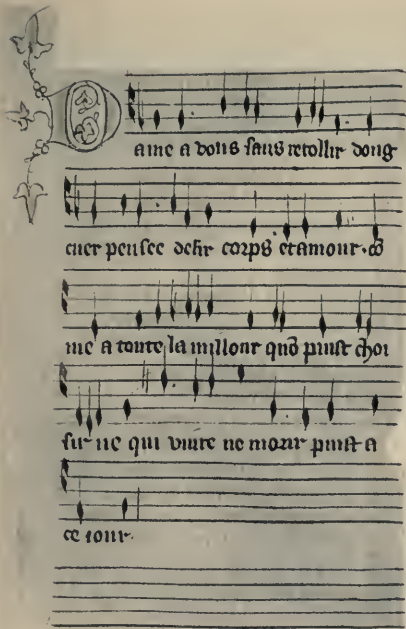 Dame a vous sans retollir dong
cuer pensee desir corps et amour. cō
me a toute la millour quō puist choi
sir ne qui viure ne morir puist a
ce iour.